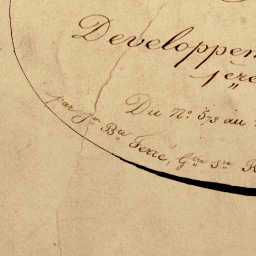 Developpem
1ère
Du N° 5,3 au
par Jn Bte Ferré, Gre Sr